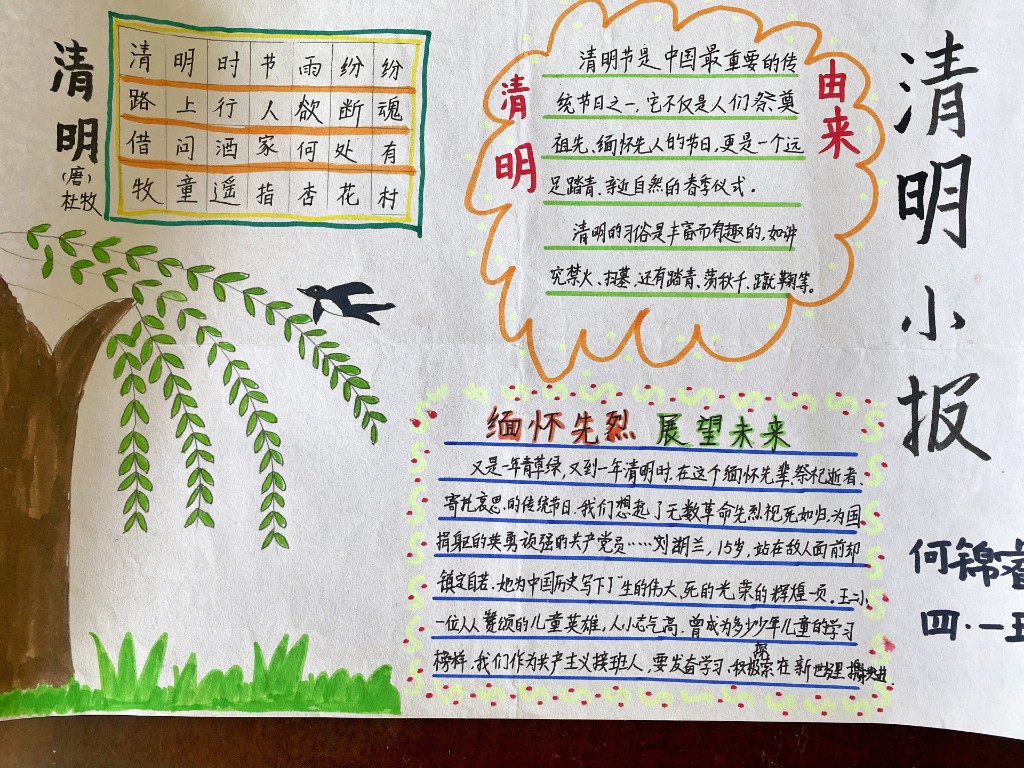 清明
(唐)
杜牧
清明时节雨纷纷
路上行人欲断魂
借问酒家何处有
牧童遥指杏花村
清明
由来
清明节是中国最重要的传
统节日之一,它不仅是人们祭奠
祖先、缅怀先人的节日,更是一个远
足踏青、亲近自然的春季仪式.
清明的习俗是丰富而有趣的,如讲
究禁火、扫墓,还有踏青、荡秋千、蹴鞠等。
缅怀先烈 展望未来
又是一年青草绿,又到一年清明时.在这个缅怀先辈、祭祀逝者、
寄托哀思的传统节日.我们想起了无数革命先烈视死如归,为国
捐躯的英勇顽强的共产党员……刘胡兰,15岁,站在敌人面前却
镇定自若.她为中国历史写下了"生的伟大,死的光荣的辉煌一页.王二小,
一位人人赞颂的儿童英雄,人小志气高.曾成为多少少年儿童的学习
榜样,我们作为共产主义接班人,要发奋学习,积极探索在新世纪里
清明小报
何锦睿
四·一